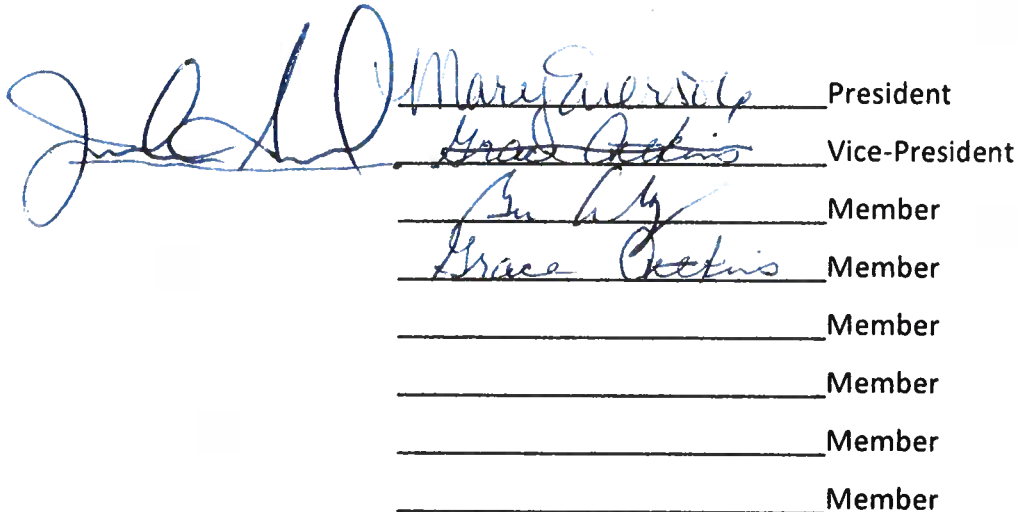 Mary Eversole President
Grace Atkins Vice-President
Member
Grace Atkins Member
Member
Member
Member
Member